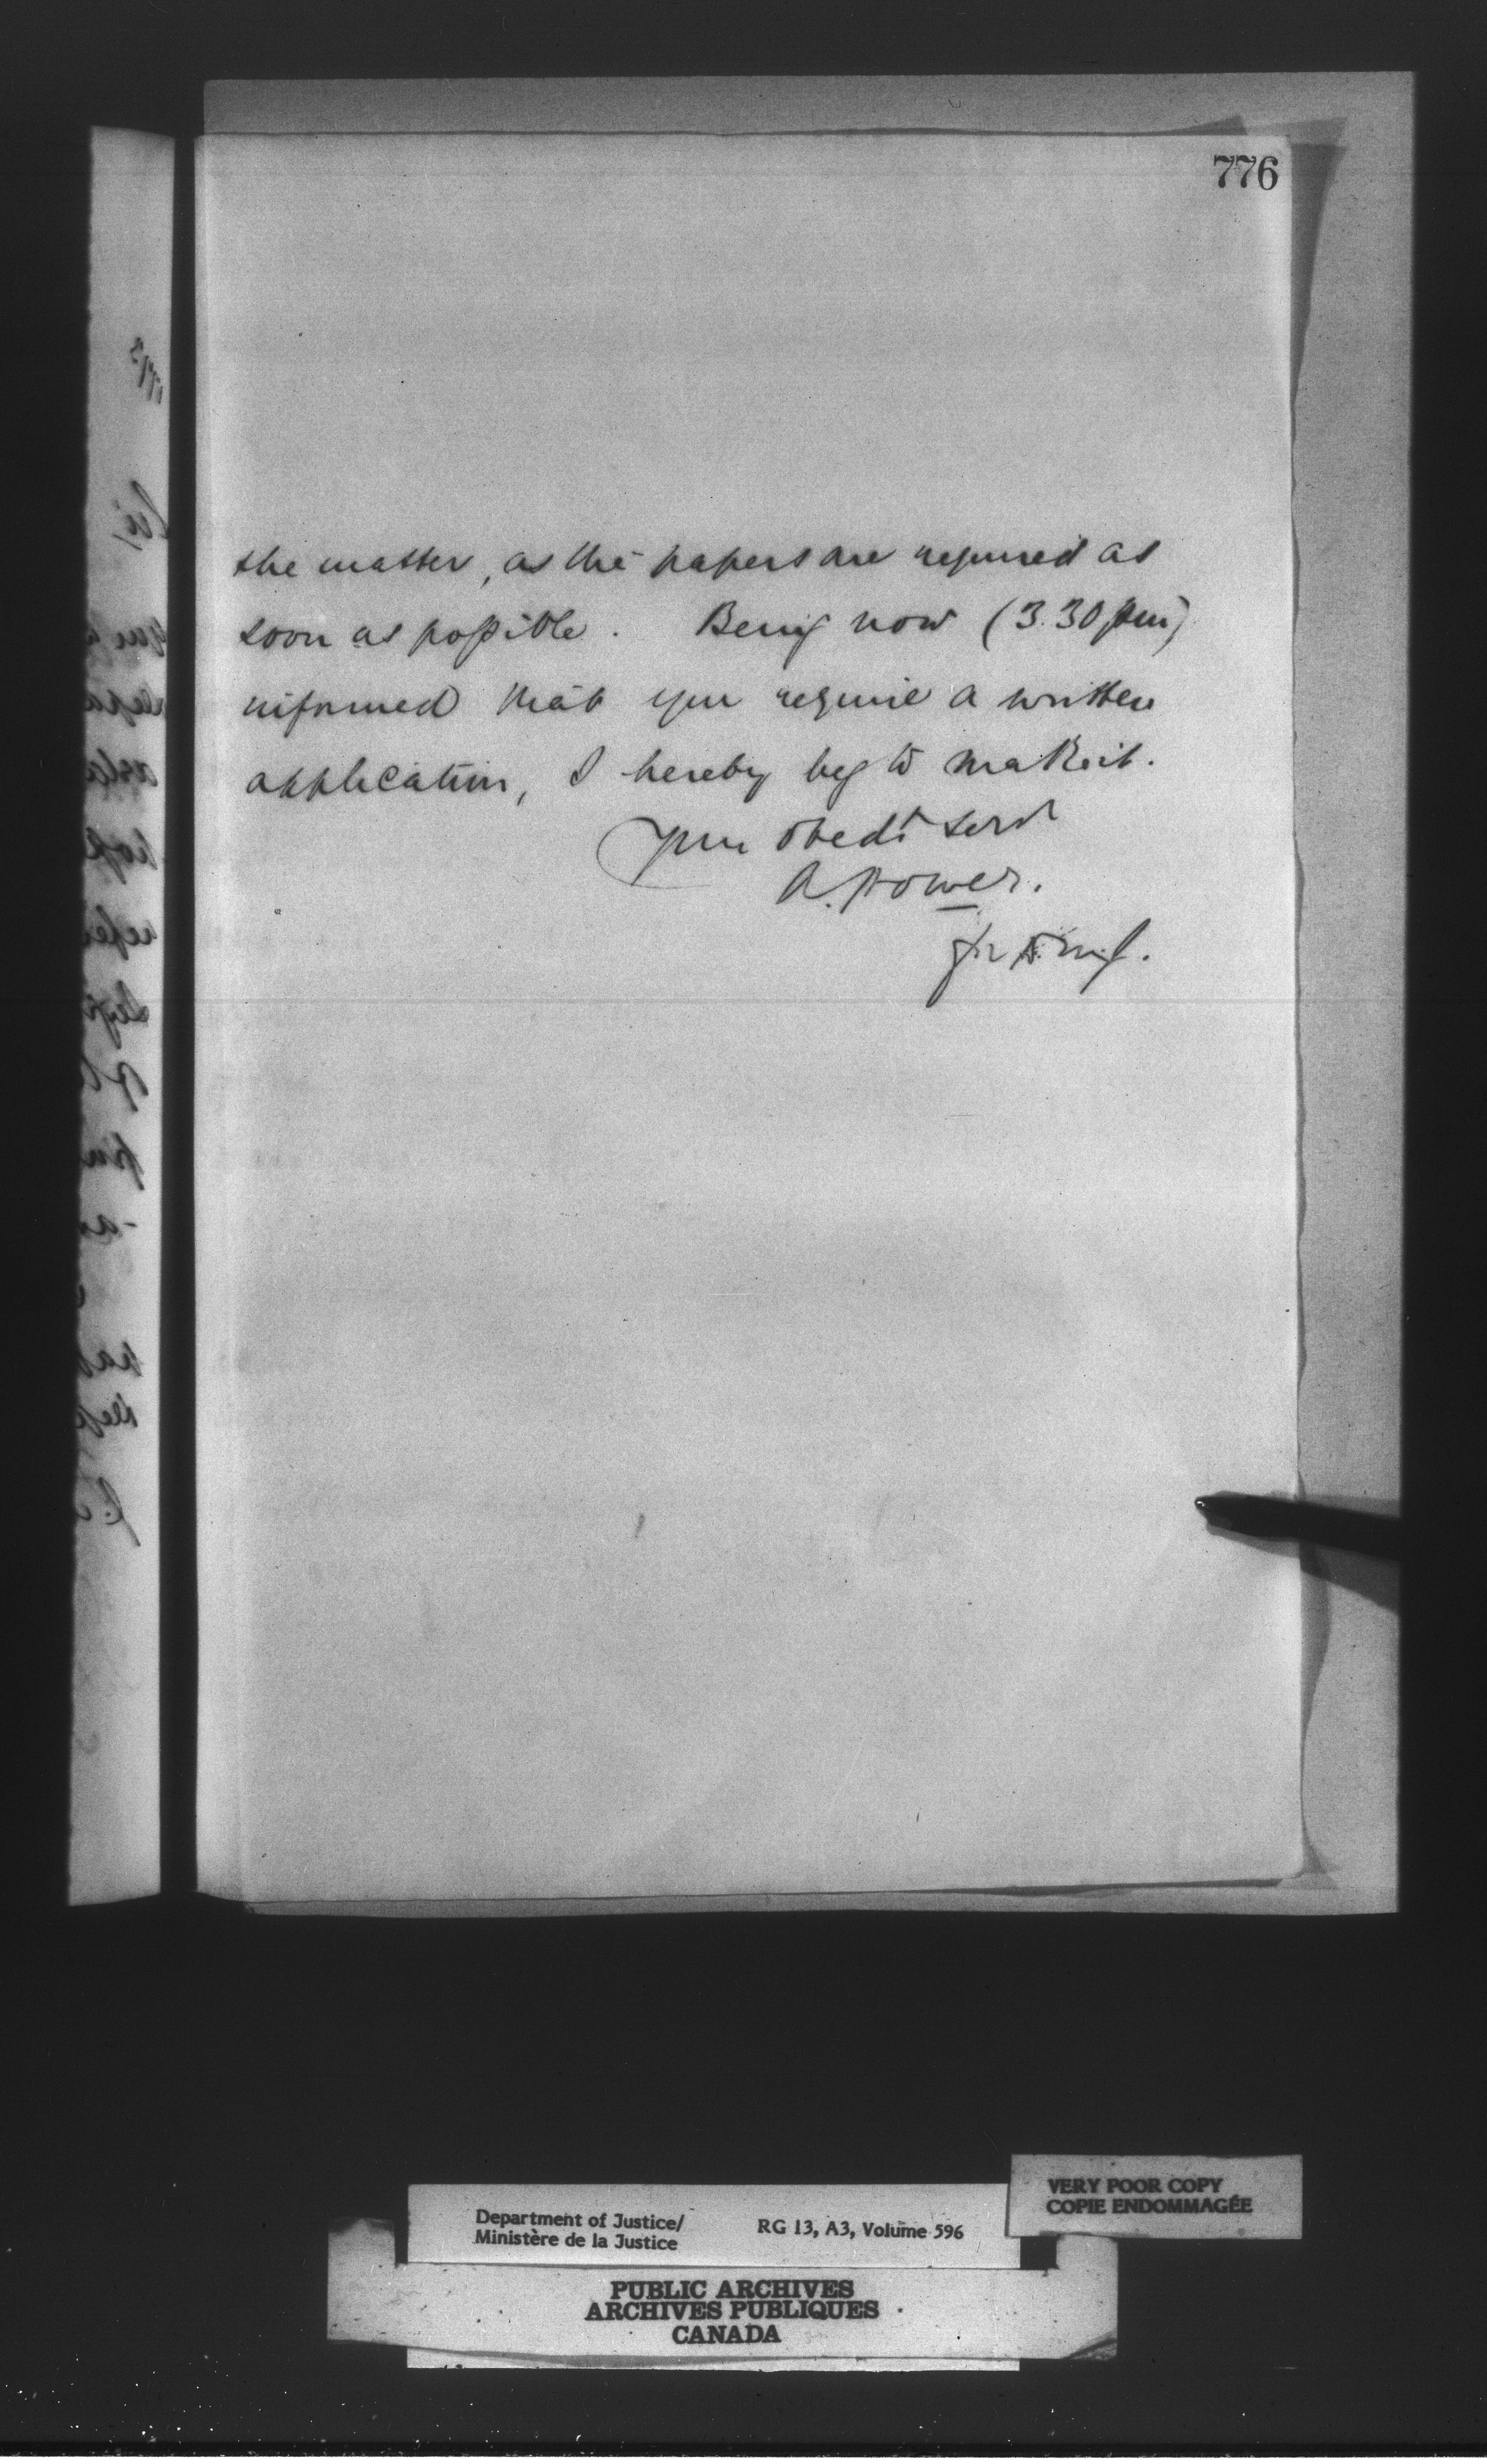 776
the matter, as the papers are required as
soon as possible. Being now (3.30 pm)
informed that you require a written
application, I hereby beg to make it.
Your obedt servt
A. Power.
for D. M. J.
VERY POOR COPY
COPIE ENDOMMAGÉE
Department of Justice/
Ministère de la Justice
RG 13, A3, Volume 596
PUBLIC ARCHIVES
ARCHIVES PUBLIQUES
CANADA